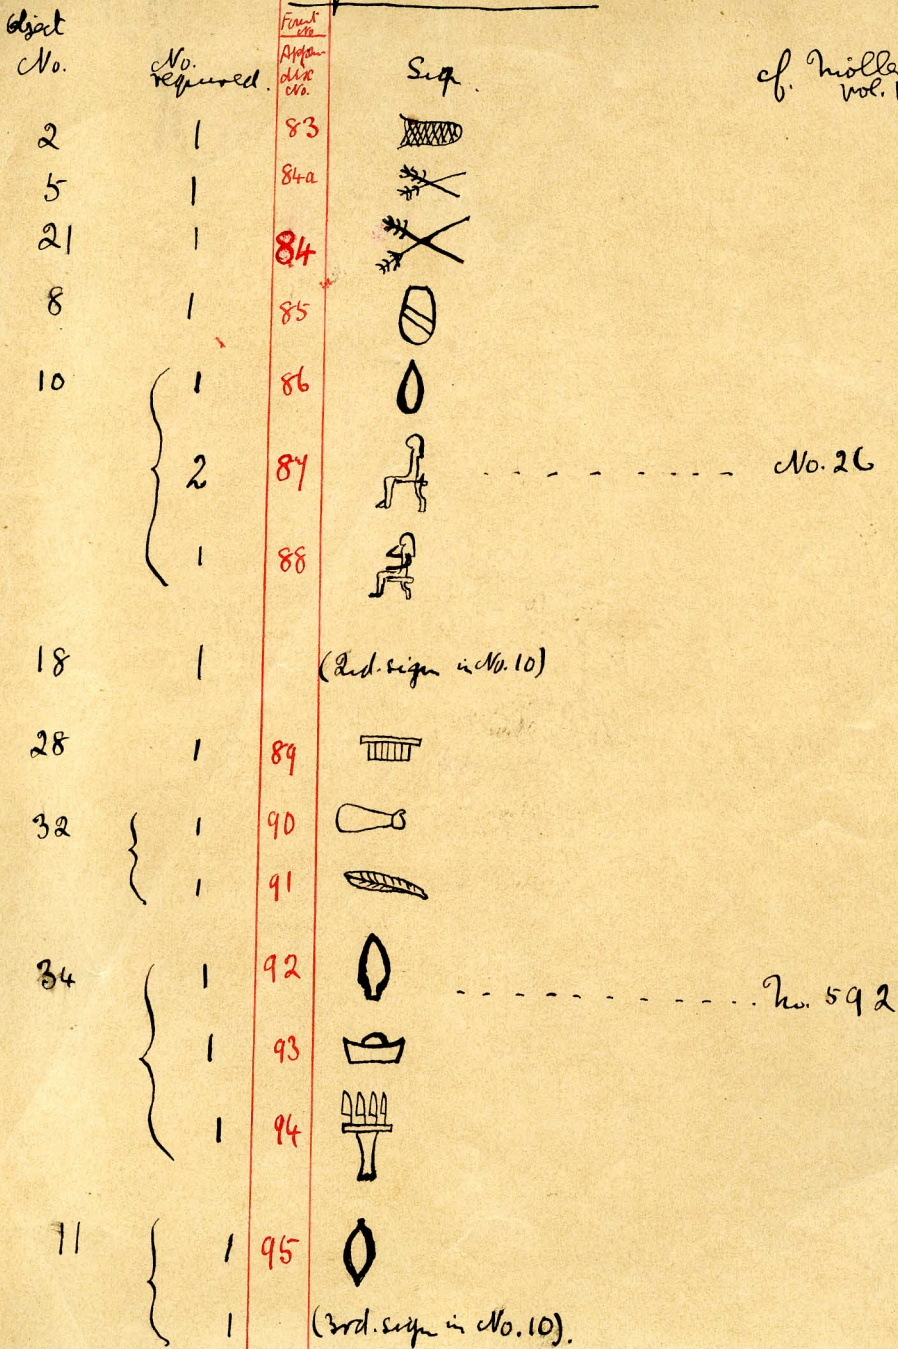 Object
No.
No.
required.
Fount
No
Appen-
dix
No.
Sign.
cf. Mölle
vol. I
2 1 83
5 1 84a
21 1 84
8 1 85
10 1 86
2 87 - - - - - - - No. 26
1 88
18 1 (2nd. sign in No. 10)
28 1 89
32 1 90
1 91
34 1 92 - - - - - - - - - - No. 592
1 93
1 94
11 1 95
1 (3rd. sign in No. 10).